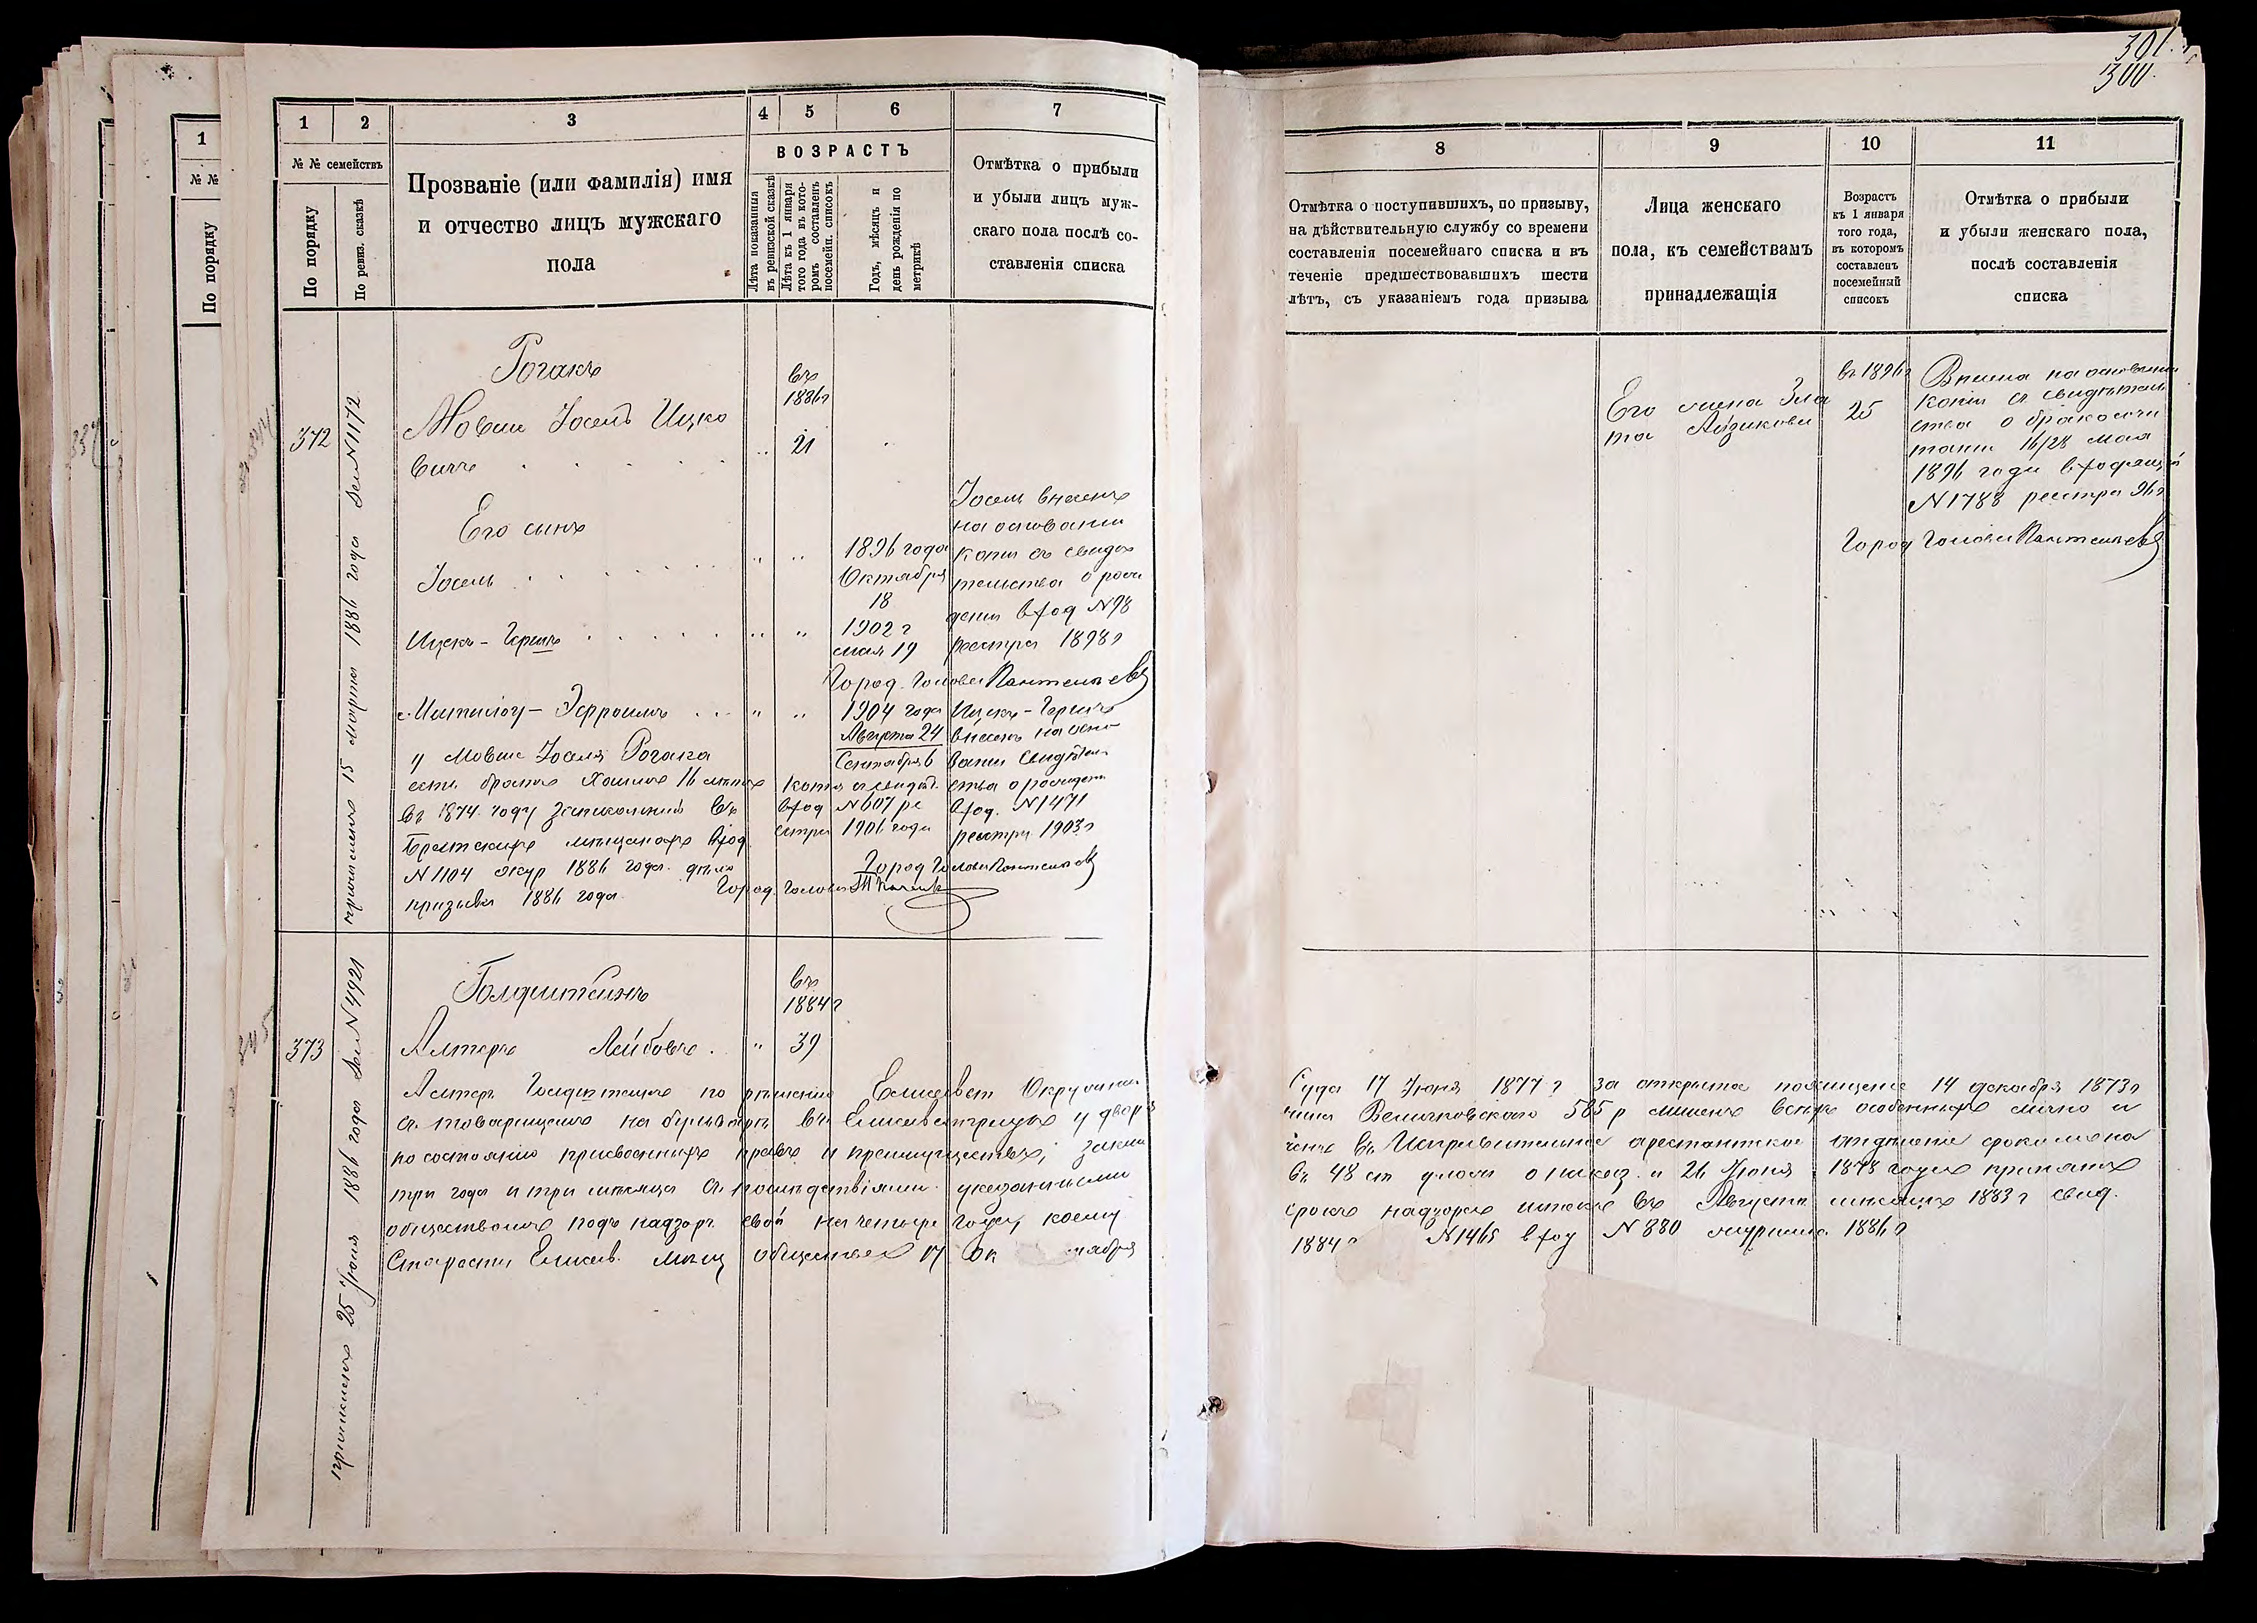 301.
300.
1
№ №
По порядку
1 2 3 4 5 6 7
№ № семействъ
По порядку
По ревиз. сказкѣ
Прозваніе (или фамилія) имя
и отчество лицъ мужскаго
пола
ВОЗРАСТЪ
Лѣта показанныя
въ ревизской сказкѣ
Лѣта къ 1 января
того года въ кото-
ромъ составленъ
посемейн. списокъ
Годъ, мѣсяцъ и
день рожденія по
метрикѣ
Отмѣтка о прибыли
и убыли лицъ муж-
скаго пола послѣ со-
ставленія списка
372
причисленъ 15 марта 1886 года N 1172
Рогакъ
въ
1886 г
Мовша Іосель Ицко
вичъ
21
Его сынъ
Іосель
1896 года
Октября
18
Іосель внесенъ
на основаніи
копіи съ свидѣ
тельства о рож
деніи вход N 98
реестра 1898 г
Ицекъ-Гершъ
1902 г
мая 19
Город. Голова Пантелѣевъ
Эфроимъ
1904 года
Августа 24
Сентября 6
Ицекъ-Гершъ
внесенъ на осно
ваніи свидѣтель
ства о рожденіи
вход. N 1471
реестра 1903 г
Город Голова Пантелѣевъ
у Мовши Іоселя Рогака
есть братъ 16 лѣтъ
въ 1874 году записанный въ
мѣщанахъ вход
N 1104 жур 1886 года дѣло
призыва 1886 года
копія свидѣт.
вход N 607 ре
естра 1901 года
Город. Голова
373
причисленъ 25 Іюня 1886 года N 4921
Голдштейнъ
въ
1884 г
Алтеръ Лейбовъ
39
Алтеръ Голдштейнъ по рѣшенію Елисавет Окружнаго
съ товарищемъ на бульварѣ въ Елисаветградѣ у двор
по состоянію присвоенныхъ правъ и преимуществъ,
три года и три мѣсяца съ послѣдствіями указанными
обществомъ подъ надзоръ свой на четыре года, коему
Старосты Елисав. мѣщ общества 17 Ок тября
8 9 10 11
Отмѣтка о поступившихъ, по призыву,
на дѣйствительную службу со времени
составленія посемейнаго списка и въ
теченіе предшествовавшихъ шести
лѣтъ, съ указаніемъ года призыва
Лица женскаго
пола, къ семействамъ
принадлежащія
Возрастъ
къ 1 января
того года,
въ которомъ
составленъ
посемейный
списокъ
Отмѣтка о прибыли
и убыли женскаго пола,
послѣ составленія
списка
Его жена Зла
та Айзикова
въ 1896 г
25
Внесена на основаніи
копіи съ свидѣтель
ства о бракосоче
таніи 16/28 мая
1896 года входящій
N 1788 реестра 96 г
Город Голова Пантелѣевъ
Суда 17 Іюня 1877 г за открытое похищеніе 14 декабря 1873 г
нина Величковскаго 585 р лишенъ всѣхъ особенныхъ лично и
ченъ въ Исправительное арестантское отдѣленіе срокомъ на
въ 48 ст улож о наказ. и 26 Іюня 1878 года принятъ
срокъ надзора истекъ въ Августѣ мѣсяцѣ 1883 г свид.
1884 г N 1465 вход N 880 журнала 1886 г